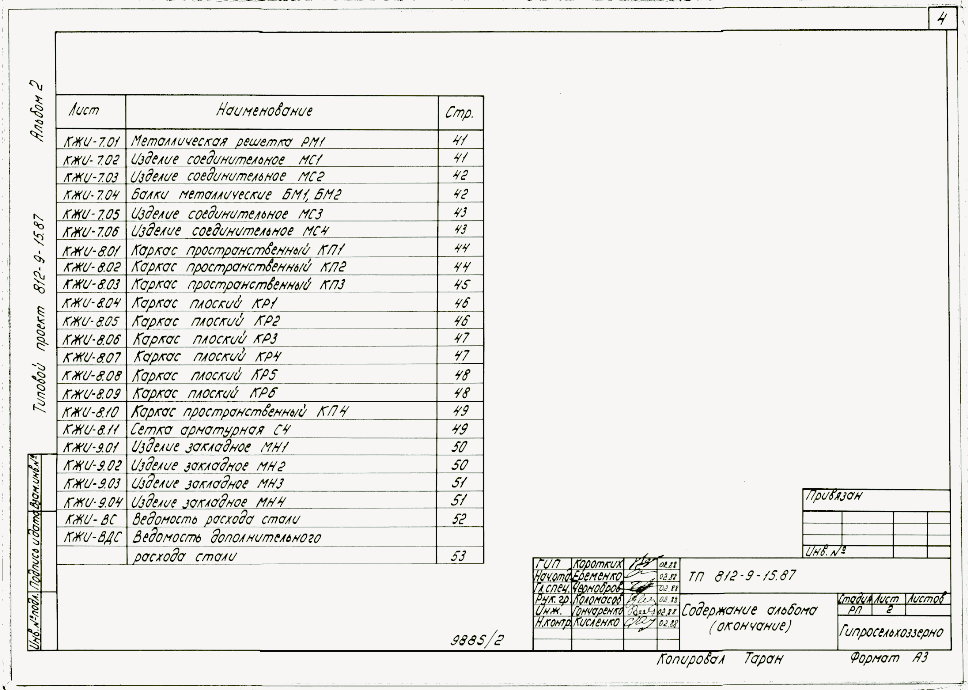 4
Альбом 2
Типовой проект 812-9-15.87
Лист Наименование Стр.
КЖИ-7.01 Металлическая решетка РМ1 41
КЖИ-7.02 Изделие соединительное МС1 41
КЖИ-7.03 Изделие соединительное МС2 42
КЖИ-7.04 Балки металлические БМ1, БМ2 42
КЖИ-7.05 Изделие соединительное МС3 43
КЖИ-7.06 Изделие соединительное МС4 43
КЖИ-8.01 Каркас пространственный КП1 44
КЖИ-8.02 Каркас пространственный КП2 44
КЖИ-8.03 Каркас пространственный КП3 45
КЖИ-8.04 Каркас плоский КР1 46
КЖИ-8.05 Каркас плоский КР2 46
КЖИ-8.06 Каркас плоский КР3 47
КЖИ-8.07 Каркас плоский КР4 47
КЖИ-8.08 Каркас плоский КР5 48
КЖИ-8.09 Каркас плоский КР6 48
КЖИ-8.10 Каркас пространственный КП4 49
КЖИ-8.11 Сетка арматурная С4 49
КЖИ-9.01 Изделие закладное МН1 50
КЖИ-9.02 Изделие закладное МН2 50
КЖИ-9.03 Изделие закладное МН3 51
КЖИ-9.04 Изделие закладное МН4 51
КЖИ-ВС Ведомость расхода стали 52
КЖИ-ВДС Ведомость дополнительного
расхода стали 53
Инв.№подл. Подпись и дата Взам.инв.№
Привязан
Инв. №
ГИП Коротких 02.88
Нач.отд. Еременко 02.88
Гл.спец. Чернобров 02.88
Рук.гр. Коломасов 02.88
Инж. Гончаренко 02.88
Н.контр. Кисленко 02.88
ТП 812-9-15.87
Содержание альбома
(окончание)
Стадия Лист Листов
РП 2
Гипросельхоззерно
9885/2
Копировал Таран Формат А3